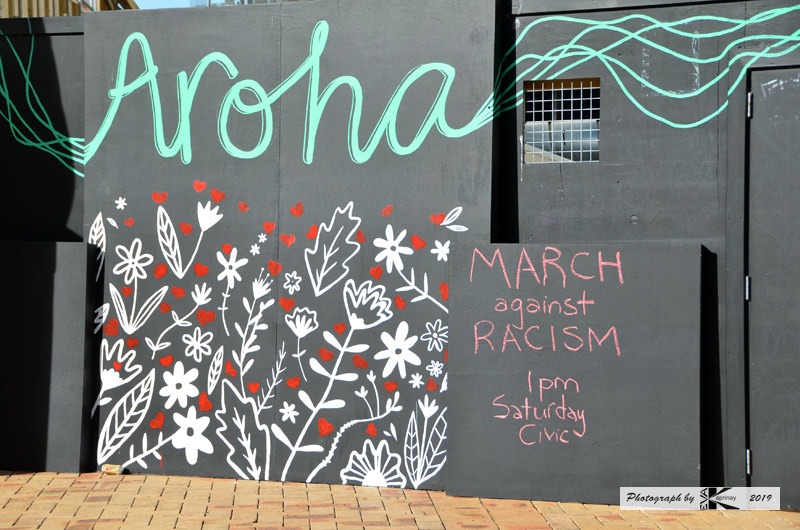 Aroha
MARCH
against
RACISM
1pm
Saturday
Civic
Photograph by EVA Kaprinay 2019